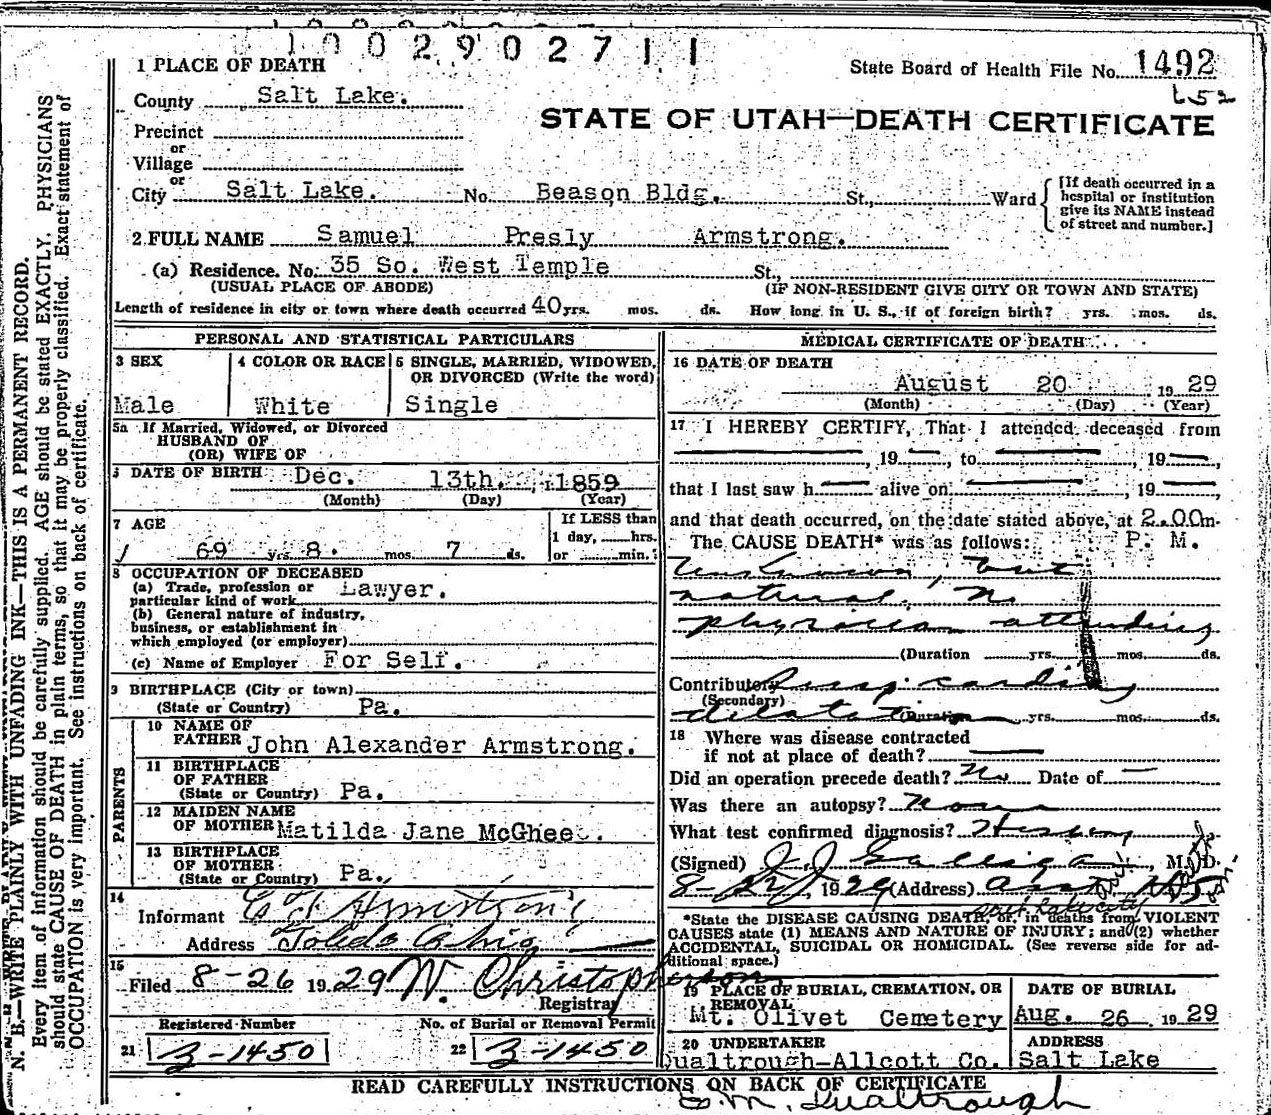 1002902711
1 PLACE OF DEATH
State Board of Health File No. 1492
County Salt Lake.
652
STATE OF UTAH—DEATH CERTIFICATE
Precinct
or
Village
or
City Salt Lake. No. Beason Bldg. St., Ward
[If death occurred in a hospital or institution give its NAME instead of street and number.]
2 FULL NAME Samuel Presly Armstrong.
(a) Residence. No. 35 So. West Temple St.,
(USUAL PLACE OF ABODE) (IF NON-RESIDENT GIVE CITY OR TOWN AND STATE)
Length of residence in city or town where death occurred 40 yrs. mos. ds. How long in U. S., if of foreign birth? yrs. mos. ds.
PERSONAL AND STATISTICAL PARTICULARS
3 SEX
Male
4 COLOR OR RACE
White
5 SINGLE, MARRIED, WIDOWED,
OR DIVORCED (Write the word)
Single
5a If Married, Widowed, or Divorced
HUSBAND OF
(OR) WIFE OF
6 DATE OF BIRTH Dec. 13th. 1859
(Month) (Day) (Year)
7 AGE
69 yrs 8. mos 7 ds.
If LESS than
1 day, hrs.
or min.
8 OCCUPATION OF DECEASED
(a) Trade, profession or
particular kind of work Lawyer.
(b) General nature of industry,
business, or establishment in
which employed (or employer)
(c) Name of Employer For Self.
9 BIRTHPLACE (City or town)
(State or Country) Pa.
PARENTS
10 NAME OF
FATHER John Alexander Armstrong.
11 BIRTHPLACE
OF FATHER
(State or Country) Pa.
12 MAIDEN NAME
OF MOTHER Matilda Jane McGhee.
13 BIRTHPLACE
OF MOTHER
(State or Country) Pa.
14
Informant C. F. Armstrong
Address Toledo Ohio
15
Filed 8-26 1929 W. Christopherson
Registrar
Registered Number
21 3-1450
No. of Burial or Removal Permit
22 3-1450
MEDICAL CERTIFICATE OF DEATH
16 DATE OF DEATH
August 20 1929
(Month) (Day) (Year)
17 I HEREBY CERTIFY, That I attended deceased from
, 19 , to , 19 ,
that I last saw h alive on , 19 ,
and that death occurred, on the date stated above, at 2.00 m.
The CAUSE DEATH* was as follows: P. M.
Unknown, but
natural. No
physician attending
(Duration yrs. mos. ds.
Contributory cardiac
(Secondary)
dilatation (Duration yrs. mos. ds.
18 Where was disease contracted
if not at place of death?
Did an operation precede death? No Date of
Was there an autopsy? None
What test confirmed diagnosis? History
(Signed) J. J. Galligan, M. D.
8-22, 1929 (Address) Asst
Salt Lake City
*State the DISEASE CAUSING DEATH, or, in deaths from VIOLENT
CAUSES state (1) MEANS AND NATURE OF INJURY; and (2) whether
ACCIDENTAL, SUICIDAL OR HOMICIDAL. (See reverse side for ad-
ditional space.)
19 PLACE OF BURIAL, CREMATION, OR
REMOVAL
Mt. Olivet Cemetery
DATE OF BURIAL
Aug. 26 1929
20 UNDERTAKER
Qualtrough-Allcott Co.
ADDRESS
Salt Lake
READ CAREFULLY INSTRUCTIONS ON BACK OF CERTIFICATE
Qualtrough
N. B.—WRITE PLAINLY WITH UNFADING INK—THIS IS A PERMANENT RECORD.
Every item of information should be carefully supplied. AGE should be stated EXACTLY. PHYSICIANS
should state CAUSE OF DEATH in plain terms, so that it may be properly classified. Exact statement of
OCCUPATION is very important. See instructions on back of certificate.